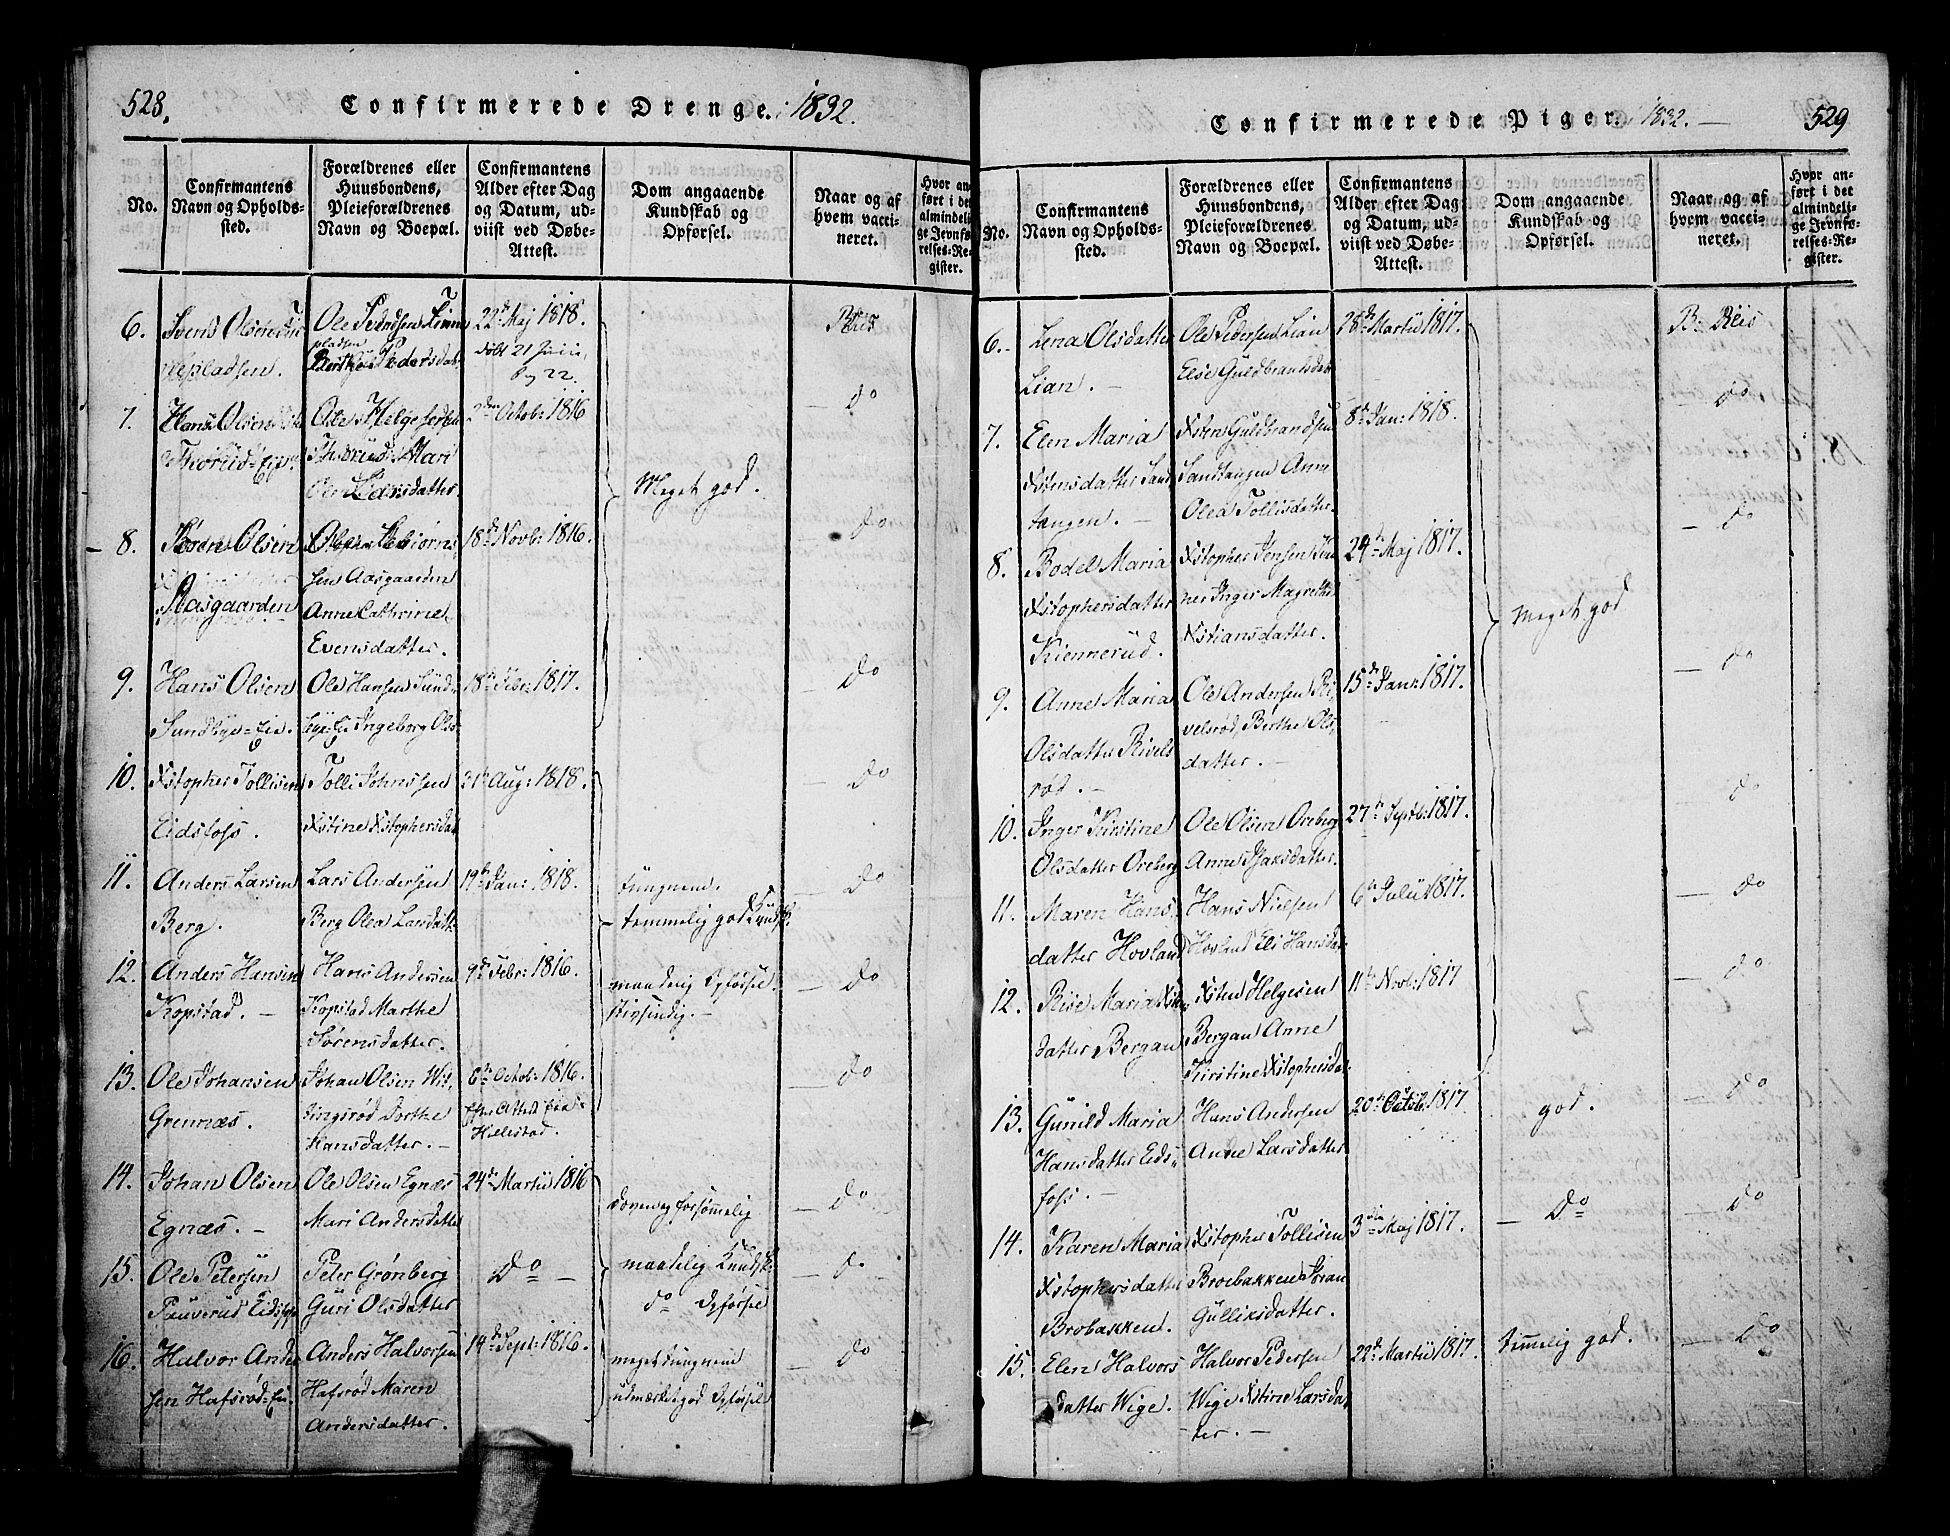 528.
Confirmerede Drenge. 1832.
No.
Confirmantens
Navn og Opholds-
sted.
Forældrenes eller
Huusbondens,
Pleieforældrenes
Navn og Boepæl.
Confirmantens
Alder efter Dag
og Datum, ud-
viist ved Døbe-
Attest.
Dom angaaende
Kundskab og
Opførsel.
Naar og af
hvem vacci-
neret.
Hvor an-
ført i det
almindeli-
ge Jevnfø-
relses-Re-
gister.
6.
Svend Olsen
pladsen.
Ole
pladsen
Pedersdat
22de Maj 1818.
døbt 21 Junii
Pag 22.
Reis
7.
Hans Olsen
Thorud-Eie
Ole Helgesen
Thorud Mari
Larsdatter.
2den Octob: 1816
Do
Meget god.
8.
Søren Olsen
Aasgaarden
Ole
sen Aasgaarden
Anne Cathrine
Evensdatter.
18de Novb: 1816.
Do
9.
Hans Olsen
Sundbye-Eie.
Ole Hansen Sund-
bye-Ei Ingeborg Ols
18de Febr: 1817.
Do
10.
Xstopher Tollisen
Eidsfoss.
Tolli Johnssen
Xstine Xstophersdat
21de Aug: 1818.
Do
11.
Anders Larsen
Berg.
Lars Andersen
Berg Olea Larsdatt:
19de Jan: 1818.
tungnem.
temmelig god Kundsk:
Do
12.
Anders Hansen
Kopstad.
Hans Andersen
Kopstad Marthe
Sørensdatter.
9de Febr: 1816.
maadelig Opførsel.
stivsindig.
Do
13.
Ole Johansen
Grennæs.
Johan Olsen Wit-
tingsrød Dorthe
Hansdatter.
6te Octob: 1816.
efter Attest fra
Hillestad.
Do
14.
Johan Olsen
Egnæs.
Ole Olsen Egnæs
Mari Andersdatter
24de Martii 1816
doven og forsømmelig
Do
15.
Ole Petersen
Pauverud Eidsfoss
Peter Grønberg
Guri Olsdatter
Do
maadelig Kundsk:
do Opførsel
do
16.
Halvor Ander
sen Hafsrød-Ei.
Anders Halvorsen
Hafsrød Maren
Andersdatter.
14de Sept: 1816.
meget tungnem
udmærket god Opførsel
Do
529
Confirmerede Piger. 1832.
No.
Confirmantens
Navn og Opholds-
sted.
Forældrenes eller
Huusbondens,
Pleieforældrenes
Navn og Boepæl.
Confirmantens
Alder efter Dag
og Datum, ud-
viist ved Døbe-
Attest.
Dom angaaende
Kundskab og
Opførsel.
Naar og af
hvem vacci-
neret.
Hvor an-
ført i det
almindeli-
ge Jevnfø-
relses-Re-
gister.
6.
Lena Olsdatter
Lian.
Ole Pedersen Lian
Else Guldbrandsdat
28de Martii 1817.
B. Reis
7.
Elen Maria
Xstensdatter Sand
tangen.
Xsten Guldbrandsen
Sandtangen Anne
Olea Tollisdatter.
8de Jan: 1818.
Do
8.
Bodel Maria
Xstophersdatter
Kiennerud.
Xstopher Jensen Kien
ner Inger Magrethe
Xstiansdatter.
24de Maj 1817.
Meget god
Do
9.
Anne Maria
Olsdatter Rivels
rød.
Ole Andersen Ri-
velsrød, Berthe Ols-
datter.
15de Janr: 1817.
Do
10.
Inger Kirstine
Olsdatter Oreberg
Ole Olsen Oreberg
Anne Isaksdatter.
27de Septb: 1817.
Do
11.
Maren Hans
datter Hovland
Hans Nielsen
Hovland Eli Hansda
6te Julii 1817.
Do
12.
Rise Maria Xsten
datter Bergan
Xsten Helgesen
Bergan Anne
Kirstine Xstophersda
11te Novb: 1817
Do
13.
Gunild Maria
Hansdatter Eids-
foss.
Hans Andersen
Anne Larsdatter
20de Octob. 1817
god.
Do
14.
Karen Maria
Xstophersdatter
Brobakken.
Xstopher Tollisen
Broebakken Joran
Gulliksdatter.
3die Maj 1817.
Do
Do
15.
Elen Halvors
datter Wige.
Halvor Pedersen
Wige Xstine Larsda
ter.
22de Martii 1817.
timmelig god.
Do